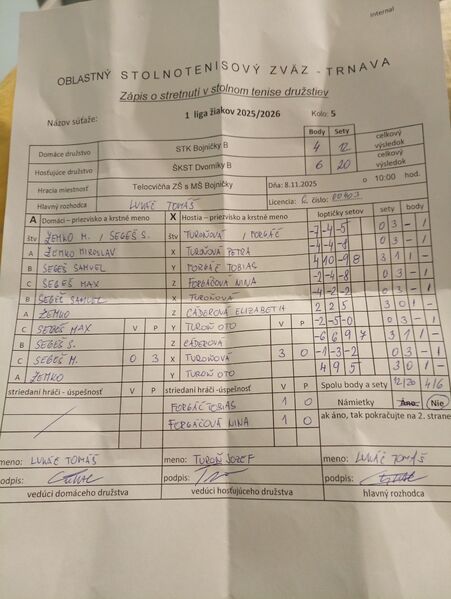 Internal
OBLASTNÝ STOLNOTENISOVÝ ZVÄZ - TRNAVA
Zápis o stretnutí v stolnom tenise družstiev
Názov súťaže: 1 liga žiakov 2025/2026 Kolo: 5
Body Sety celkový výsledok
Domáce družstvo STK Bojničky B 4 12
Hosťujúce družstvo ŠKST Dvorníky B 6 20 celkový výsledok
Hracia miestnosť Telocvičňa ZŠ s MŠ Bojničky Dňa: 8.11.2025 o 10:00 hod.
Hlavný rozhodca LUKÁČ TOMÁŠ Licencia: C číslo:
A Domáci - priezvisko a krstné meno X Hostia – priezvisko a krstné meno loptičky setov sety body
štv ŽEMKO M. / SEGEŠ S. štv TUROŇOVÁ / FORGÁČ -7 -4 -5 0 3 - 1
A ŽEMKO MIROSLAV X TUROŇOVÁ PETRA -4 -4 -8 0 3 - 1
B SEGEŠ SAMUEL Y FORGÁČ TOBIAS 4 10 -9 8 3 1 1 -
C SEGEŠ MAX Z FORGÁČOVÁ NINA -2 -4 -8 0 3 - 1
B SEGEŠ SAMUEL X TUROŇOVÁ -4 -2 -2 0 3 - 1
A ŽEMKO Z CÁDEROVÁ ELIZABETH 2 2 5 3 0 1 -
C SEGEŠ MAX V P Y TUROŇ OTO V P -2 -5 -0 0 3 - 1
B SEGEŠ S. Z CÁDEROVÁ -6 6 9 7 3 1 1 -
C SEGEŠ M. 0 3 X TUROŇOVÁ 3 0 -1 -3 -2 0 3 - 1
A ŽEMKO Y TUROŇ OTO 4 9 5 3 0 1 -
striedaní hráči - úspešnosť V P striedaní hráči -úspešnosť V P Spolu body a sety 12/20 4/6
FORGÁČ TOBIAS 1 0 Námietky Áno. Nie
FORGÁČOVÁ NINA 1 0 ak áno, tak pokračujte na 2. strane
meno: LUKÁČ TOMÁŠ meno: TUROŇ JOZEF meno: LUKÁČ TOMÁŠ
podpis: podpis: podpis:
vedúci domáceho družstva vedúci hosťujúceho družstva hlavný rozhodca